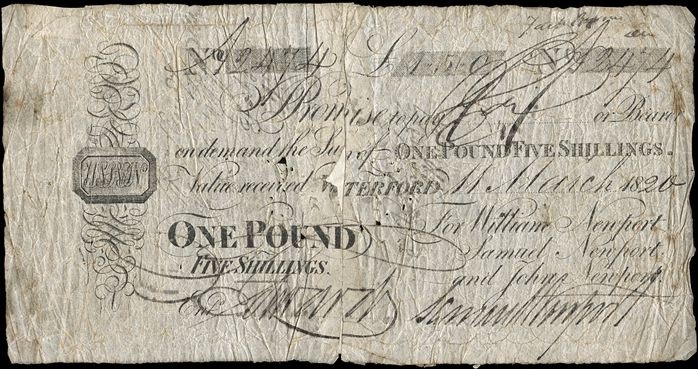 No 12474 £ 1-5-0 No 12474
I Promise to pay or Bearer
on demand the Sum of ONE POUND FIVE SHILLINGS.
Value received WATERFORD 11 March 1820
For William Newport
ONE POUND
Samuel Newport
FIVE SHILLINGS.
and John Newport
Entd
Samuel Newport